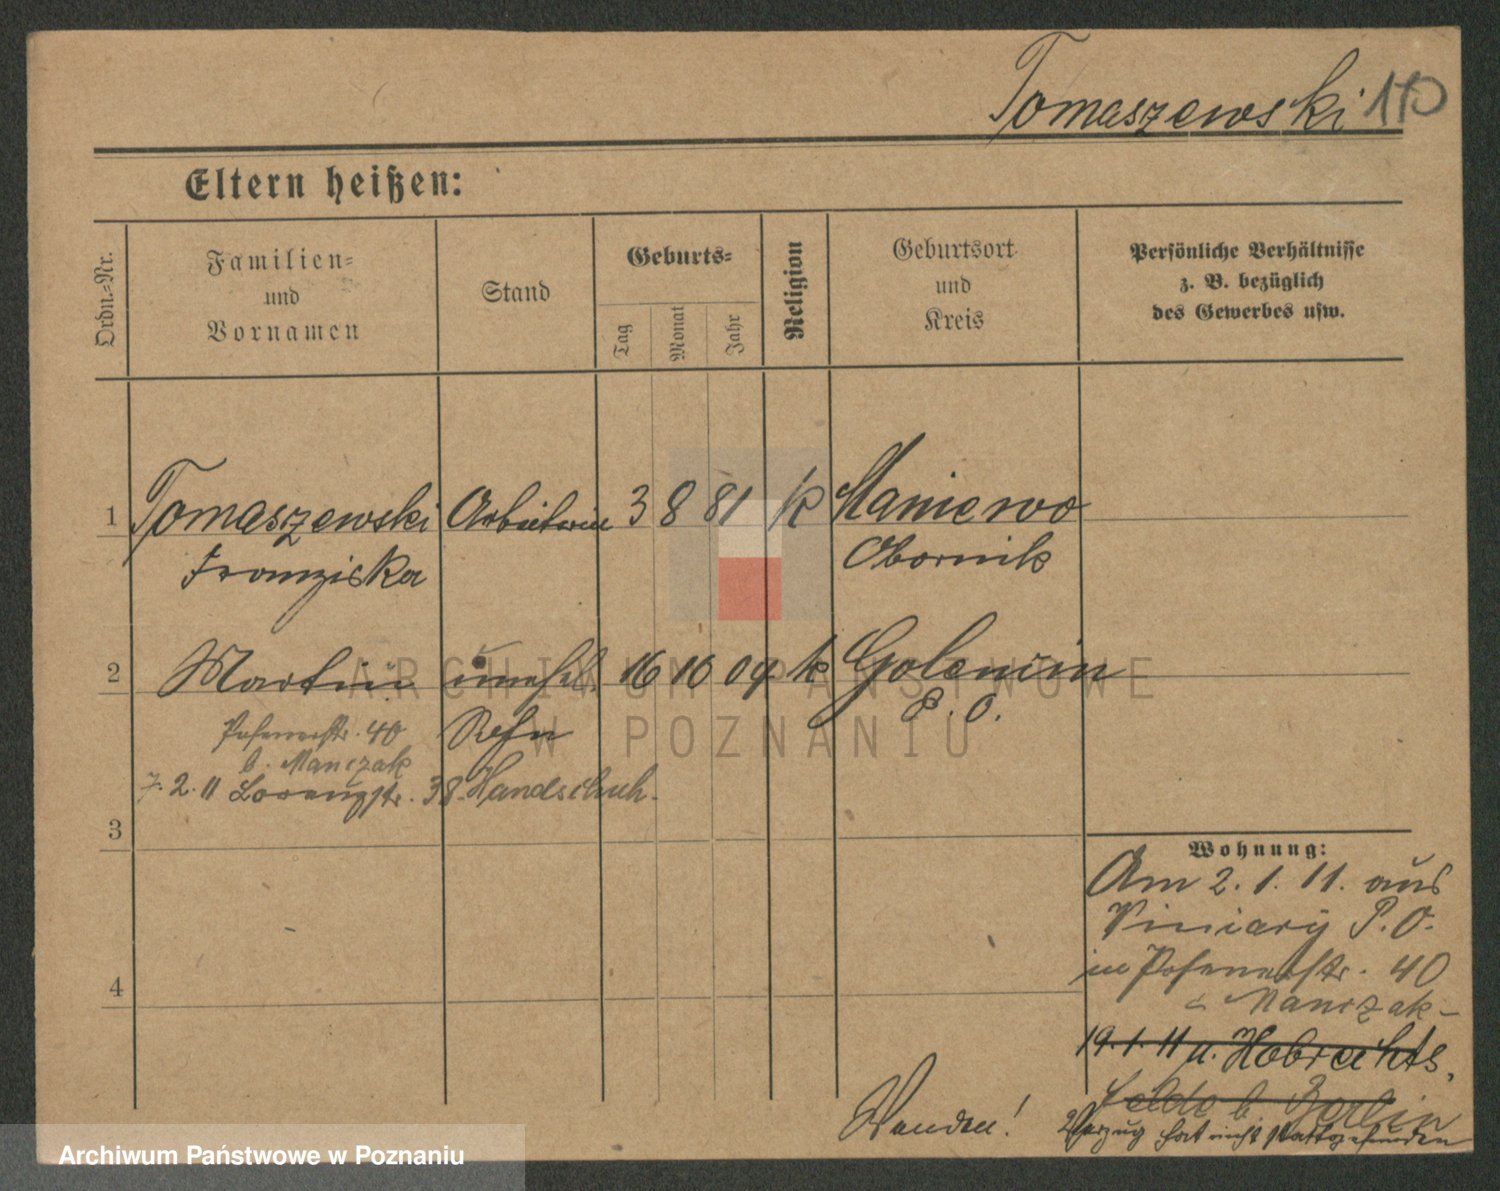 Tomaszewski 110
Eltern heißen:
Ordn.-Nr.
Familien-
und
Vornamen
Stand
Geburts-
Tag
Monat
Jahr
Religion
Geburtsort
und
Kreis
Persönliche Verhältnisse
z. B. bezüglich
des Gewerbes usw.
1 Tomaszewski Arbeiterin 3 8 81 k Maniewo
Franziska Obornik
2 Martin unehel. 16 10 09 k Golencin
P. O.
Posenerstr. 40 Sohn
b. Manczak
7. 2. 11 Lorenzstr. 38 Handschuh.
3
Wohnung:
Am 2. 1. 11. aus
Viniary P. O.
in Posenerstr. 40
Manczak
4
19. 1. 11 n. Hobrechts
felde b. Berlin
Verzug hat nicht stattgefunden
Wenden!
ARCHIWUM PAŃSTWOWE
W POZNANIU
Archiwum Państwowe w Poznaniu